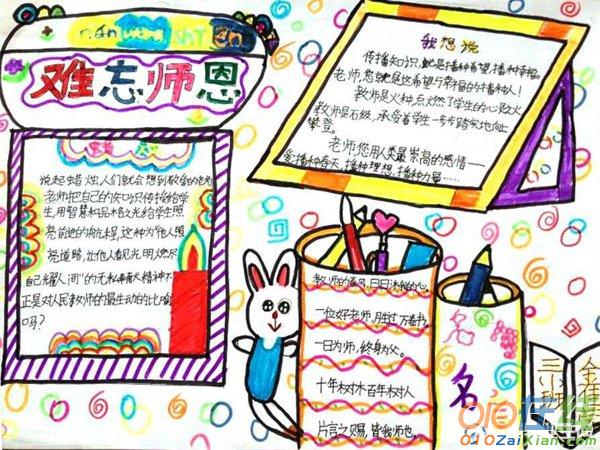 nan wang shi en
难忘师恩
我想说
传播知识,就是播种希望,播种幸福。
老师,您就是这希望与幸福的播种人!
教师是火种,点燃了学生的心灵之火
教师是石级,承受着学生一步步踏实地向上
攀登。
老师您用人类最崇高的感情——
爱,播种春天,播种理想,播种力量……
说起蜡烛,人们就会想到敬爱的老师
老师把自己的知识传授给学
生,用智慧和品格的光给学生照
亮前进的航程,这种为他人照
亮道路,让他人看见光明"燃尽
自己耀人间"的无私奉献精神不
正是对人民教师的最生动的比喻
吗?
教师如春风,日日沐我心。
一位好老师,胜过万卷书。
一日为师,终身为父。
十年树木百年树人
片言之赐,皆我师也。
名
名
三
小
班
010在线
010ZaiXian.com